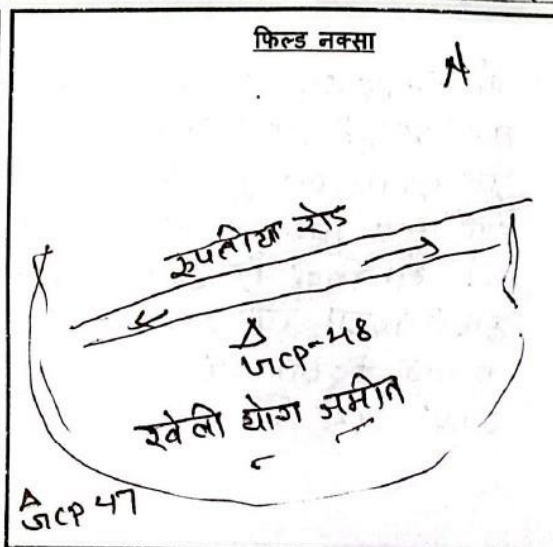 फिल्ड नक्सा
N
रुपतीया रोड
GCP-48
खेती योग जमीन
GCP 47